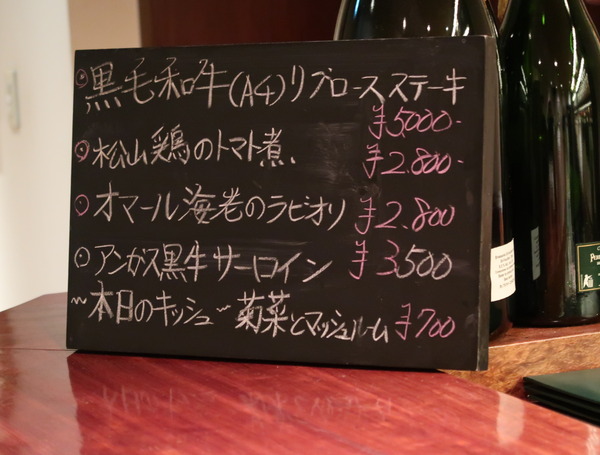 黒毛和牛(A4)リブロースステーキ
¥5000-
松山鶏のトマト煮、
¥2.800-
オマール海老のラビオリ ¥2.800
アンガス黒牛サーロイン ¥3,500
~本日のキッシュ~ 菊菜とマッシュルーム ¥700